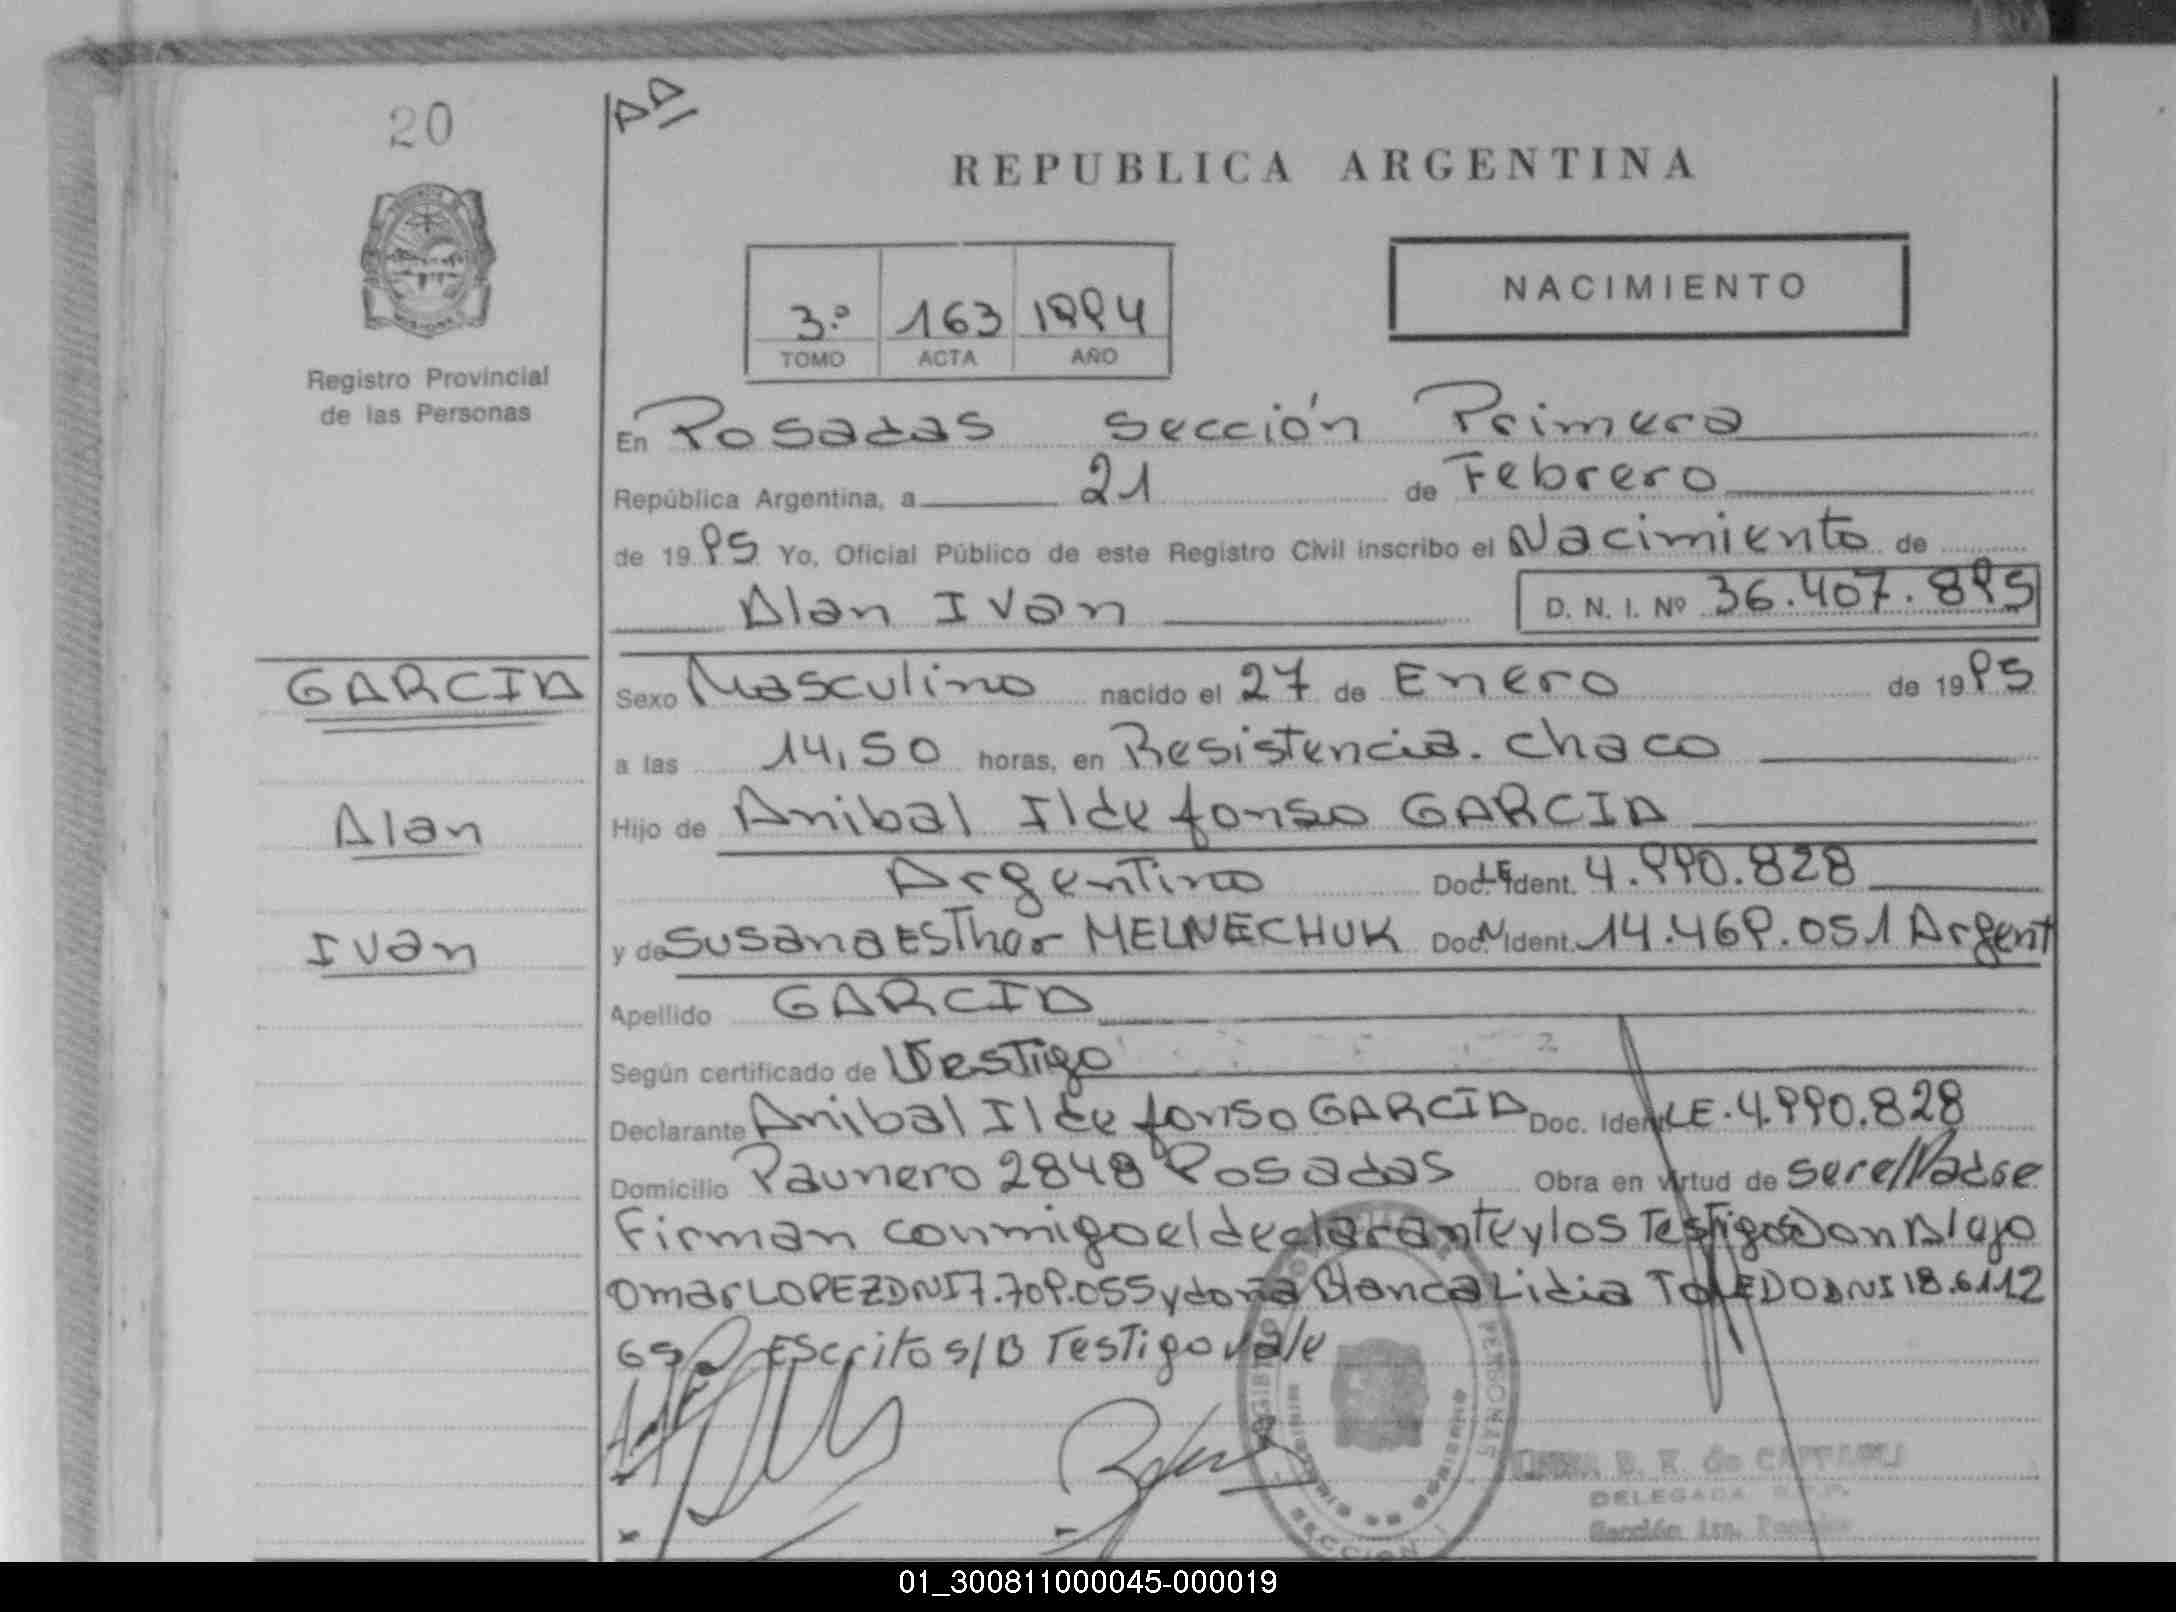 20
AA
REPUBLICA ARGENTINA
NACIMIENTO
3.º 163 1994
TOMO ACTA AÑO
Registro Provincial
de las Personas
En Posadas Sección Primera
República Argentina, a 21 de Febrero
de 1995 Yo, Oficial Público de este Registro Civil inscribo el Nacimiento de
Alan Ivan D. N. I. Nº 36.407.895
GARCIA
Alan
Ivan
Sexo Masculino nacido el 27 de Enero de 1995
a las 14,50 horas, en Resistencia. Chaco
Hijo de Anibal Ildefonso GARCIA
Argentino Doc. Ident. LE 4.990.828
y de Susana Esther MELNECHUK Doc. Ident. 14.469.051 Argent
Apellido GARCIA
Según certificado de Testigo
Declarante Anibal Ildefonso GARCIA Doc. Ident LE. 4.990.828
Domicilio Paunero 2848 Posadas Obra en virtud de ser el Padre
Firman conmigo el declarante y los Testigos Don Alejo
Omar LOPEZ DNI 7.709.055 y doña Blanca Lidia TOLEDO DNI 18.6112
69 Escrito s/B Testigo vale
REGISTRO PERSONAS
MISIONES
SECCION 1
B. K. de
DELEGADA R.P.P.
Sección 1ra. Posadas
01_300811000045-000019